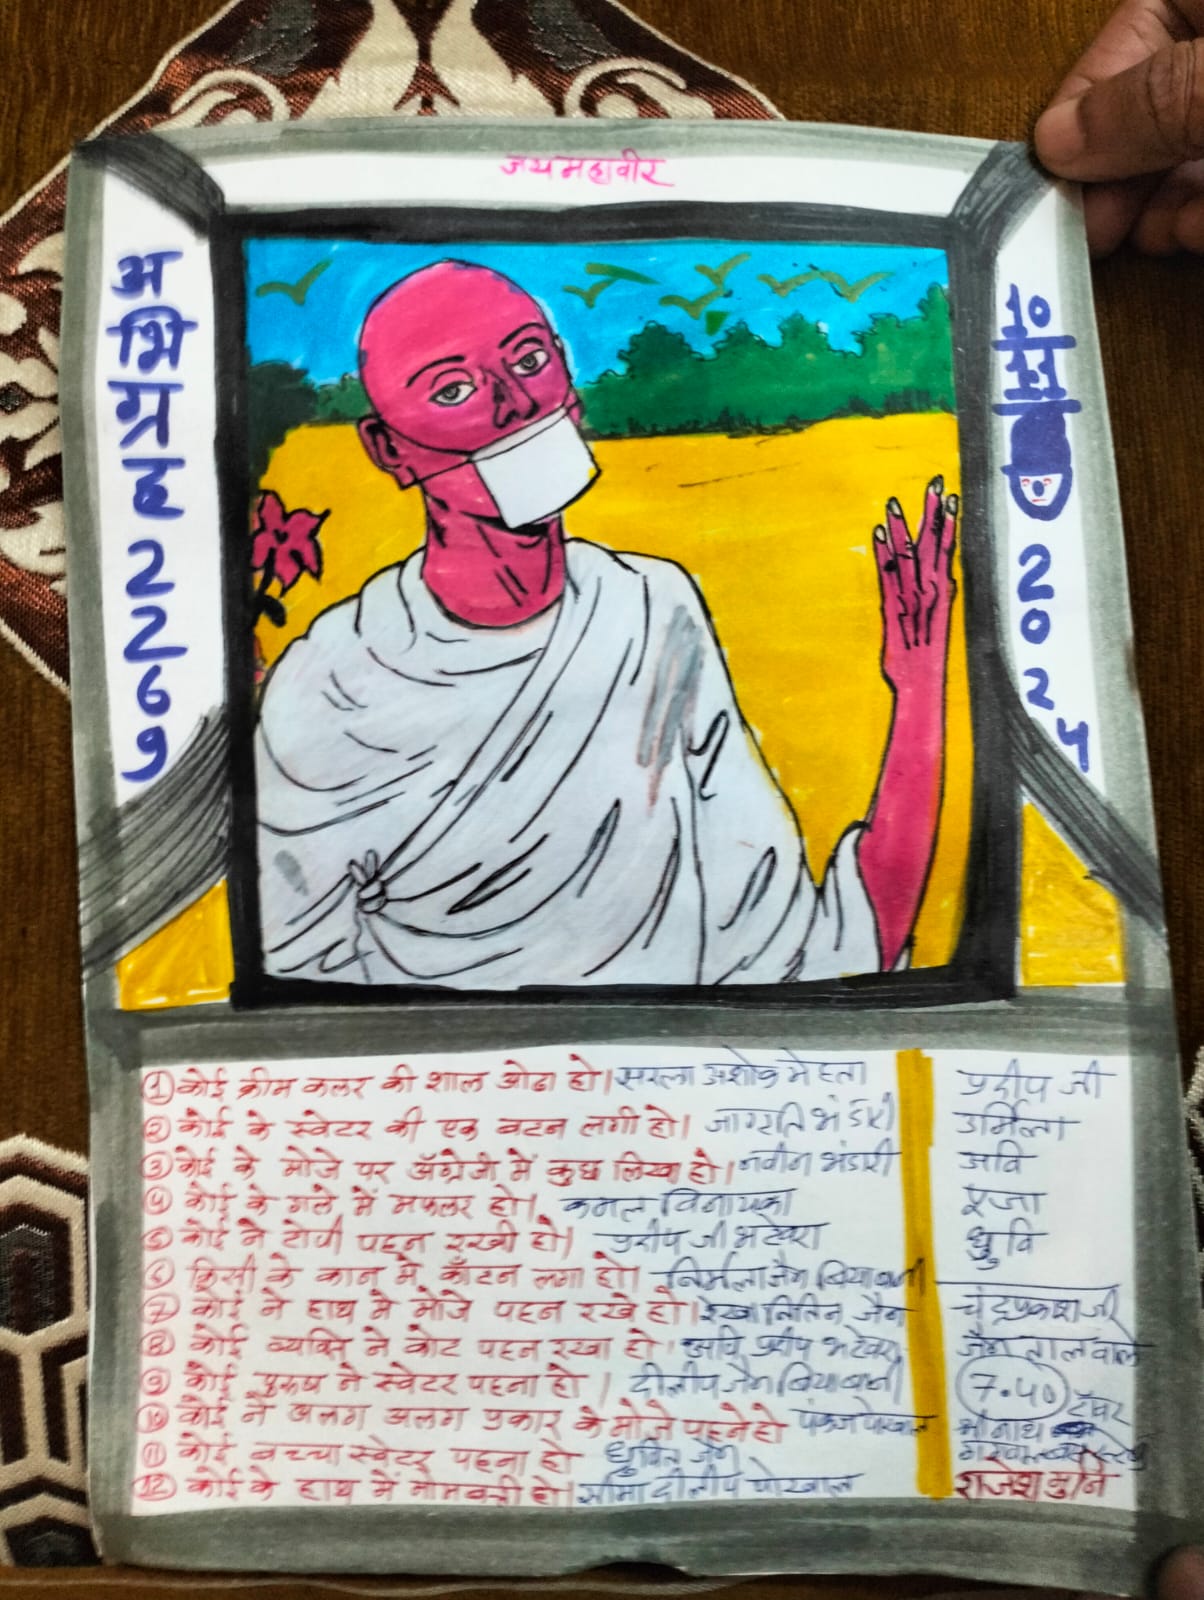 जय महावीर
अभिग्रह 2269
2025
① कोई क्रीम कलर की शाल ओढा हो। सरला अशोक मेहता
② कोई के स्वेटर की एक बटन लगी हो। जागृति भंडारी
③ कोई के मोजे पर अंग्रेजी में कुछ लिखा हो। नवीन भंडारी
④ कोई के गले में मफलर हो। कमल विनायका
⑤ कोई ने टोपी पहन रखी हो। प्रदीप जी भटेवरा
⑥ किसी के कान में कॉटन लगा हो। निर्मला जैन बियाबानी
⑦ कोई ने हाथ मे मोजे पहन रखे हो। रेखा नितिन जैन
⑧ कोई व्यक्ति ने कोट पहन रखा हो। प्रदीप भटेवरा
⑨ कोई पुरुष ने स्वेटर पहना हो। दीलीप जैन बियाबानी
⑩ कोई ने अलग अलग प्रकार के मोजे पहने हो पंकज पोरवाल
⑪ कोई बच्चा स्वेटर पहना हो जैन
⑫ कोई के हाथ में मोमबत्ती हो। सीमा दीलीप पोरवाल
प्रदीप जी
उर्मिला
अवि
पूजा
ध्रुवि
चंद्रप्रकाश जी
जैन लाल वाले
7.40
राजेश मुनि